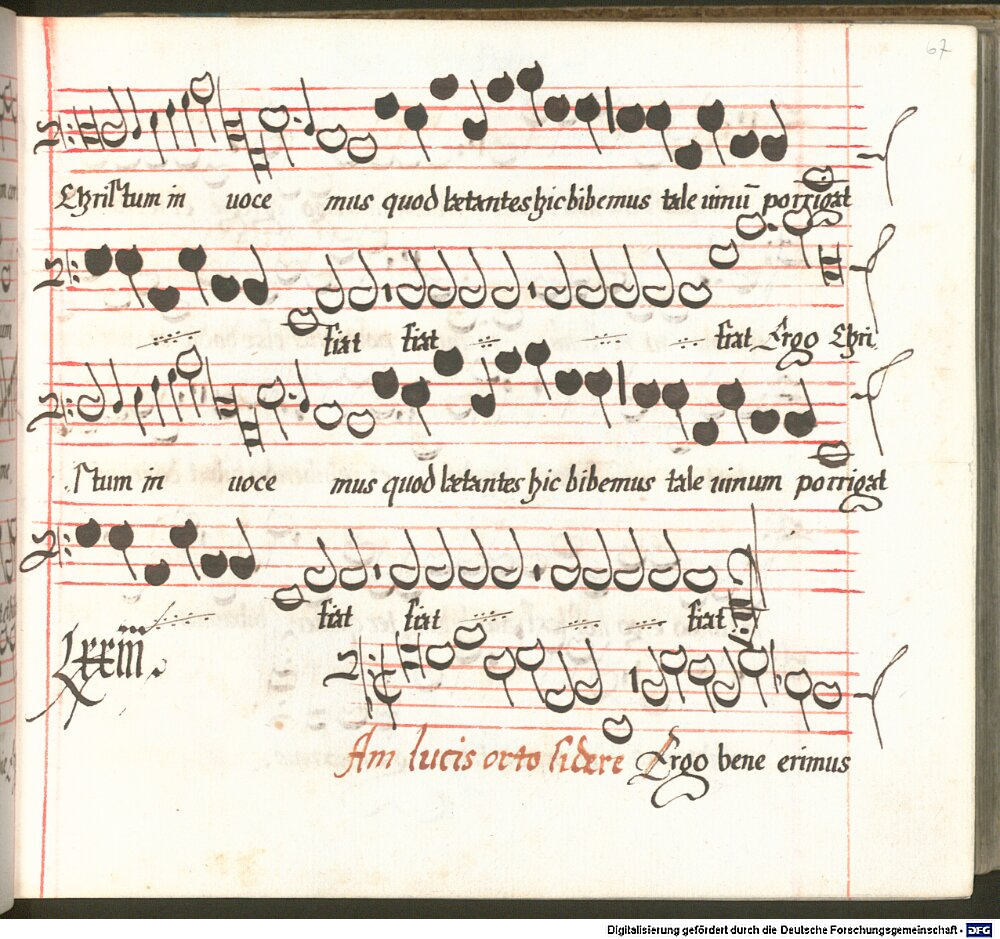 67
Christum in uoce mus quod lætantes hic bibemus tale uinū porrigat
fiat fiat fiat Ergo Chri
stum in uoce mus quod lætantes hic bibemus tale uinum porrigat
fiat fiat fiat
Lxxiii.
Am lucis orto sidere Ergo bene erimus
Digitalisierung gefördert durch die Deutsche Forschungsgemeinschaft - DFG